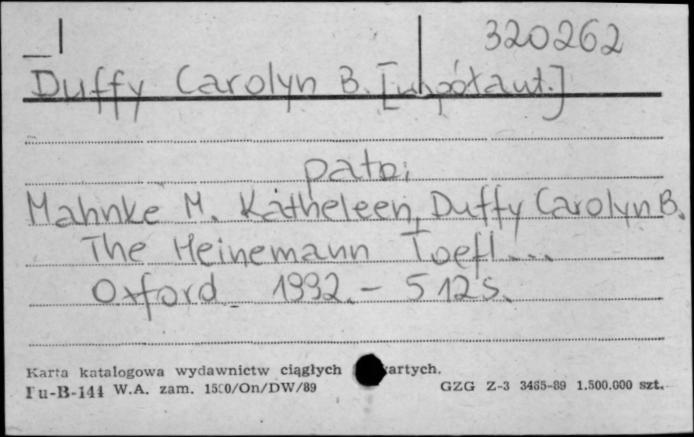 320262
Duffy Carolyn B. [współaut.]
patrz:
Mahnke M. Katheleen, Duffy Carolyn B.
The Heinemann Toefl...
Oxford 1992. – 512 s.
Karta katalogowa wydawnictw ciągłych
Pu-B-144 W.A. zam. 1500/On/DW/89 GZG Z-3 3465-89 1.500.000 szt.